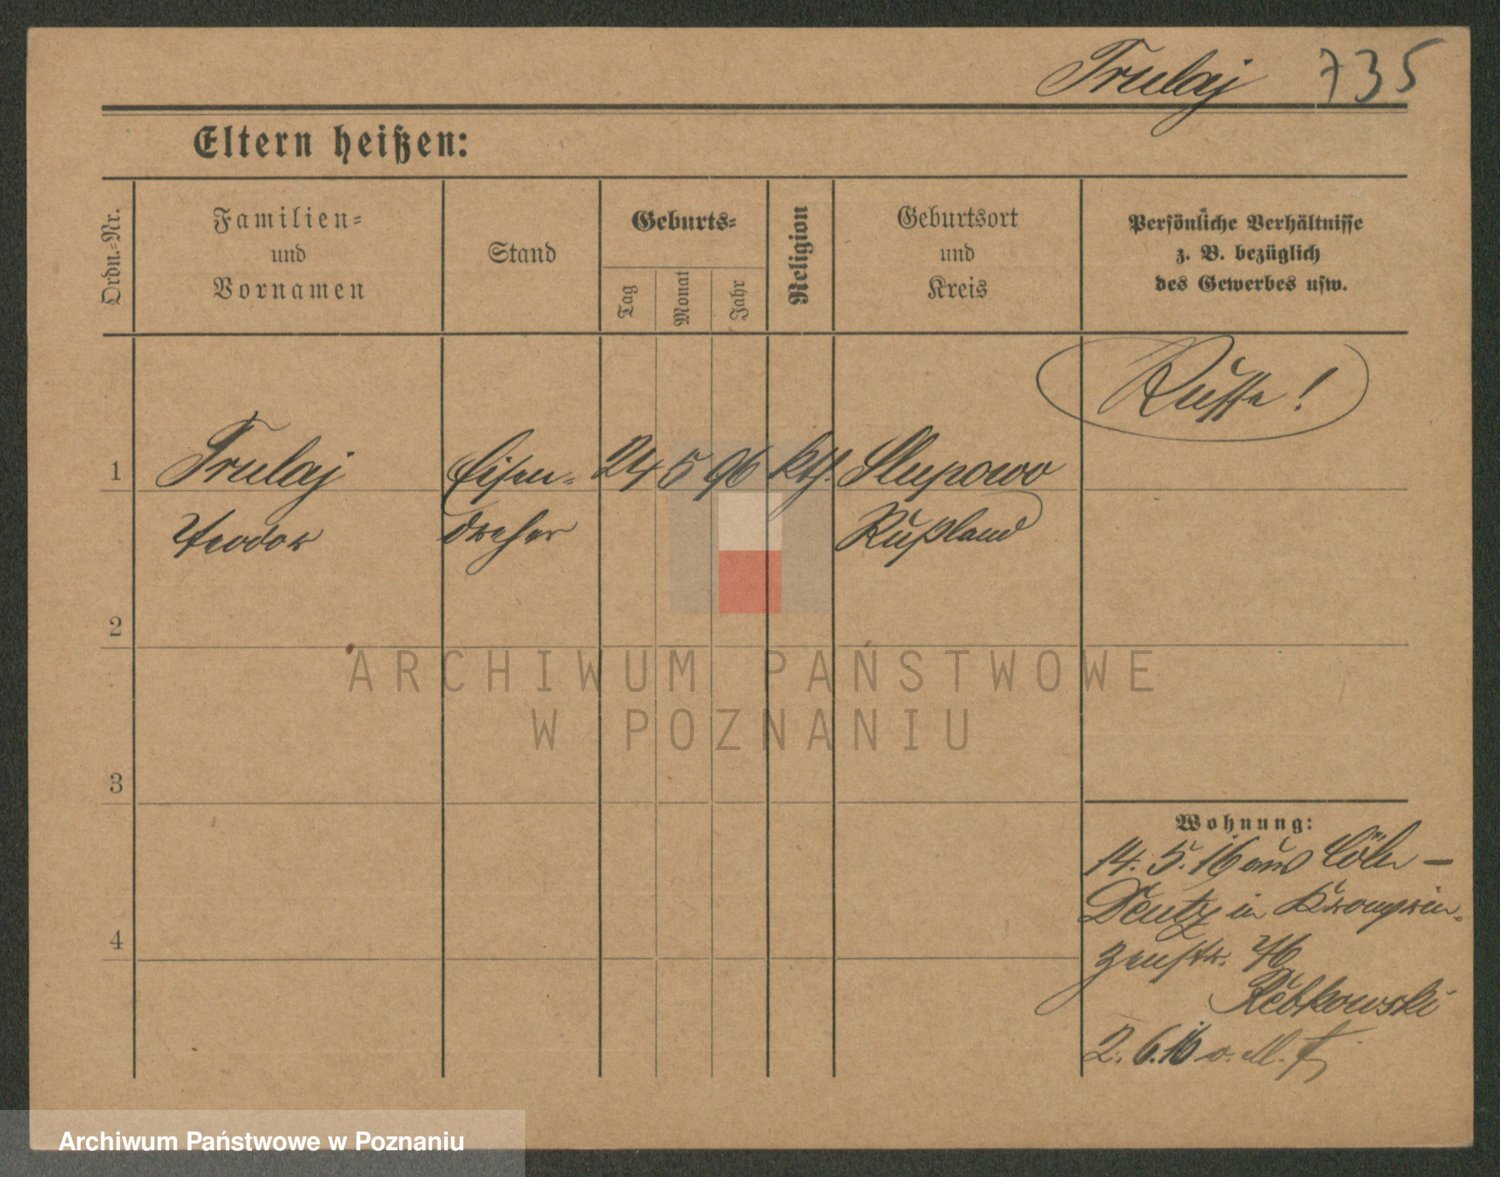 Trulaj 735
Eltern heißen:
Ordn.-Nr.
Familien-
und
Vornamen
Stand
Geburts-
Tag
Monat
Jahr
Religion
Geburtsort
und
Kreis
Persönliche Verhältnisse
z. B. bezüglich
des Gewerbes usw.
Russe!
1 Trulaj Eisen- 24 5 96 kth. Slupowo
Teodor dreher Rußland
2
3
4
Wohnung:
14. 5. 16 aus Cöln -
Deutz in Kronprin-
zenstr. 46
Rebkowski
2. 6. 16 o. M.
ARCHIWUM PAŃSTWOWE
W POZNANIU
Archiwum Państwowe w Poznaniu